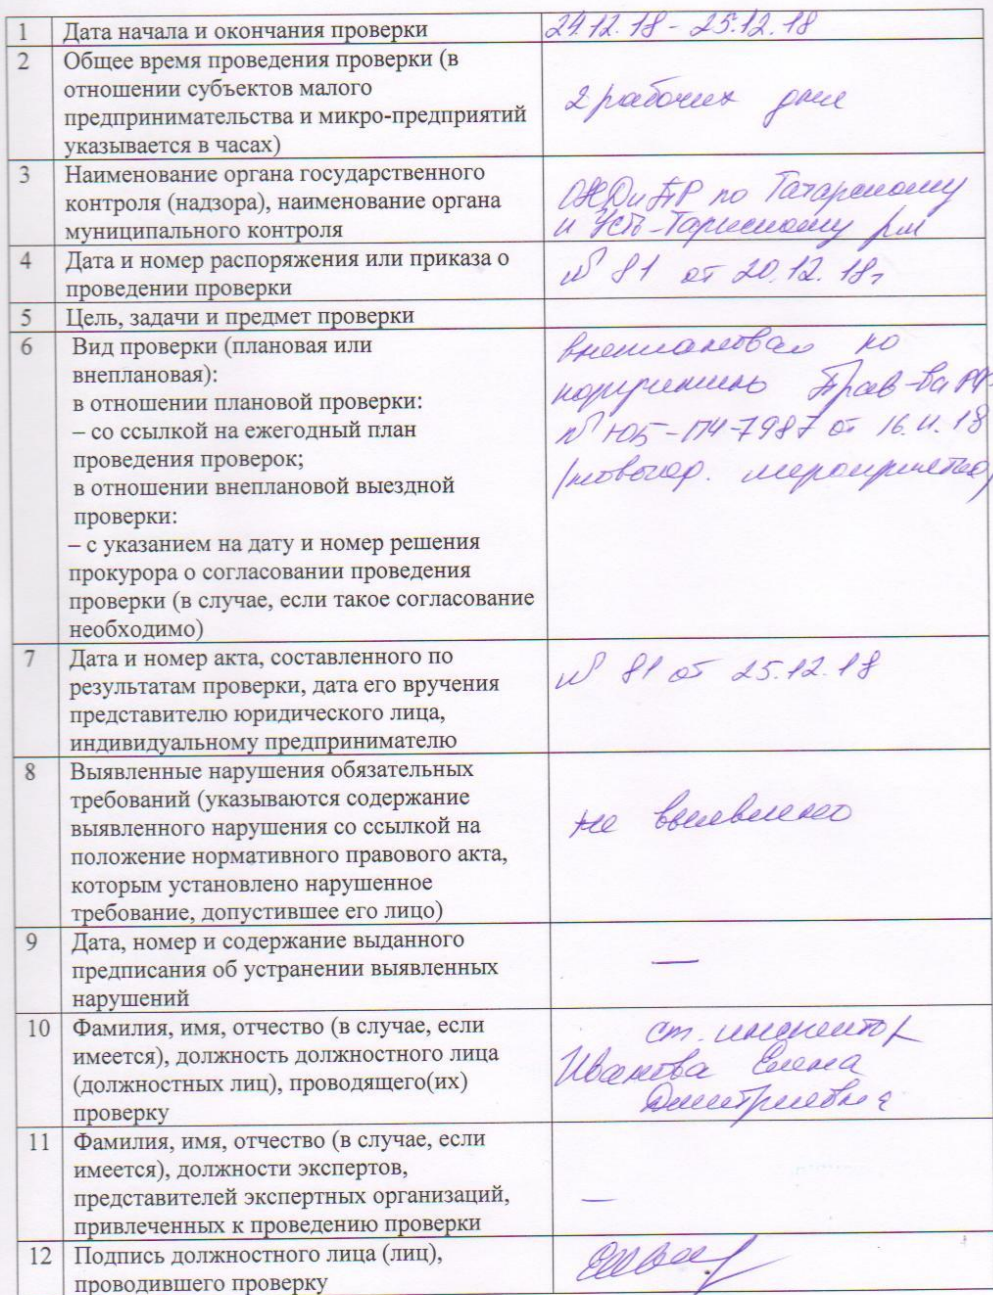 1 Дата начала и окончания проверки 24.12.18 - 25.12.18
2 Общее время проведения проверки (в
отношении субъектов малого
предпринимательства и микро-предприятий
указывается в часах)
2 рабочих дня
3 Наименование органа государственного
контроля (надзора), наименование органа
муниципального контроля
по Татарскому
и Усть-Таркскому
4 Дата и номер распоряжения или приказа о
проведении проверки
№ 81 от 20.12.18г
5 Цель, задачи и предмет проверки
6 Вид проверки (плановая или
внеплановая):
в отношении плановой проверки:
– со ссылкой на ежегодный план
проведения проверок;
в отношении внеплановой выездной
проверки:
– с указанием на дату и номер решения
прокурора о согласовании проведения
проверки (в случае, если такое согласование
необходимо)
внеплановая по
поручению Прав-ва РФ
№ ЮБ-П4-7987 от 16.11.18
(новогод. мероприятия)
7 Дата и номер акта, составленного по
результатам проверки, дата его вручения
представителю юридического лица,
индивидуальному предпринимателю
№ 81 от 25.12.18
8 Выявленные нарушения обязательных
требований (указываются содержание
выявленного нарушения со ссылкой на
положение нормативного правового акта,
которым установлено нарушенное
требование, допустившее его лицо)
не выявлено
9 Дата, номер и содержание выданного
предписания об устранении выявленных
нарушений
—
10 Фамилия, имя, отчество (в случае, если
имеется), должность должностного лица
(должностных лиц), проводящего(их)
проверку
ст. инспектор
Иванова Елена
Дмитриевна
11 Фамилия, имя, отчество (в случае, если
имеется), должности экспертов,
представителей экспертных организаций,
привлеченных к проведению проверки
—
12 Подпись должностного лица (лиц),
проводившего проверку